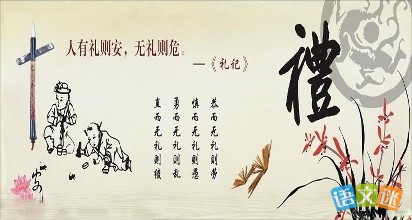 人有礼则安，无礼则危。
—《礼记》
禮
恭而无礼则劳
慎而无礼则葸
勇而无礼则乱
直而无礼则绞
语文迷